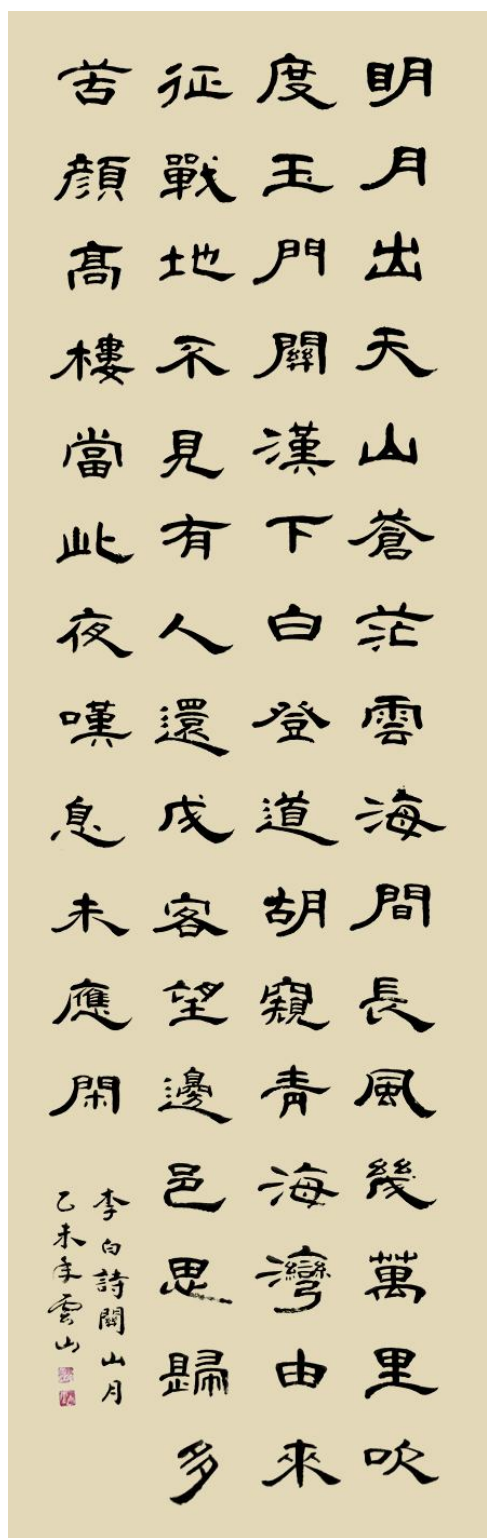 眀月出天山蒼茫雲海間長風幾萬里吹
度玉門關漢下白登道胡窺青海灣由來
征戰地不見有人還戍客望邊邑思歸多
苦顔髙樓當此夜嘆息未應閑
李白詩關山月
乙未年雲山